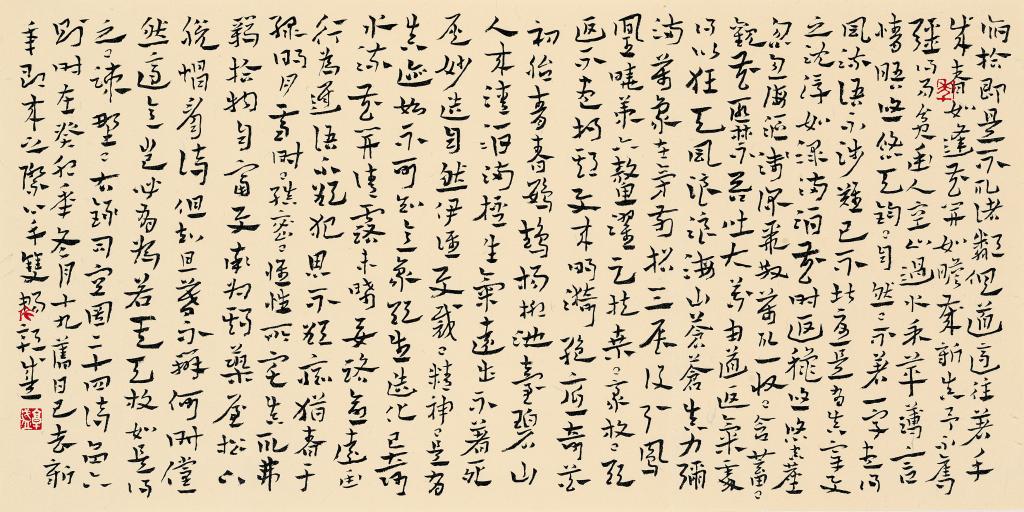 俯拾即是不取諸鄰俱道適往著手
成春如逢花開如瞻歲新真予不奪
強得易貧幽人空山過水采苹薄言
情晤悠悠天鈞自然不著一字盡得
風流語不涉難已不堪憂是有真宰與
之沈浮如淥滿酒花時返秋悠悠空塵
忽忽海漚淺深聚散萬取一收含蓄
觀花匪禁吞吐大荒由道返氣處
得以狂天風浪浪海山蒼蒼真力彌
滿萬象在旁前招三辰後引鳳
凰曉策六鼇濯足扶桑豪放欲
返不盡相期與來明漪絕底奇花
初胎青春鸚鵡楊柳池臺碧山
人來清酒滿杯生氣遠出不著死
灰妙造自然伊誰與裁精神是有
真迹如不可知意象欲生造化已奇
水流花開清露未晞要路愈遠幽
行為遲語不欲犯思不欲癡猶春于
綠明月雪時縝密惟性所宅真取弗
羈拾物自富與率為期築屋松下
脫帽看詩但知旦暮不辨何時儻
然適意豈必有為若其天放如是得
之疎野右錄司空圖二十四詩品六
則時在癸卯年冬月十九舊日已去新
年即來之際